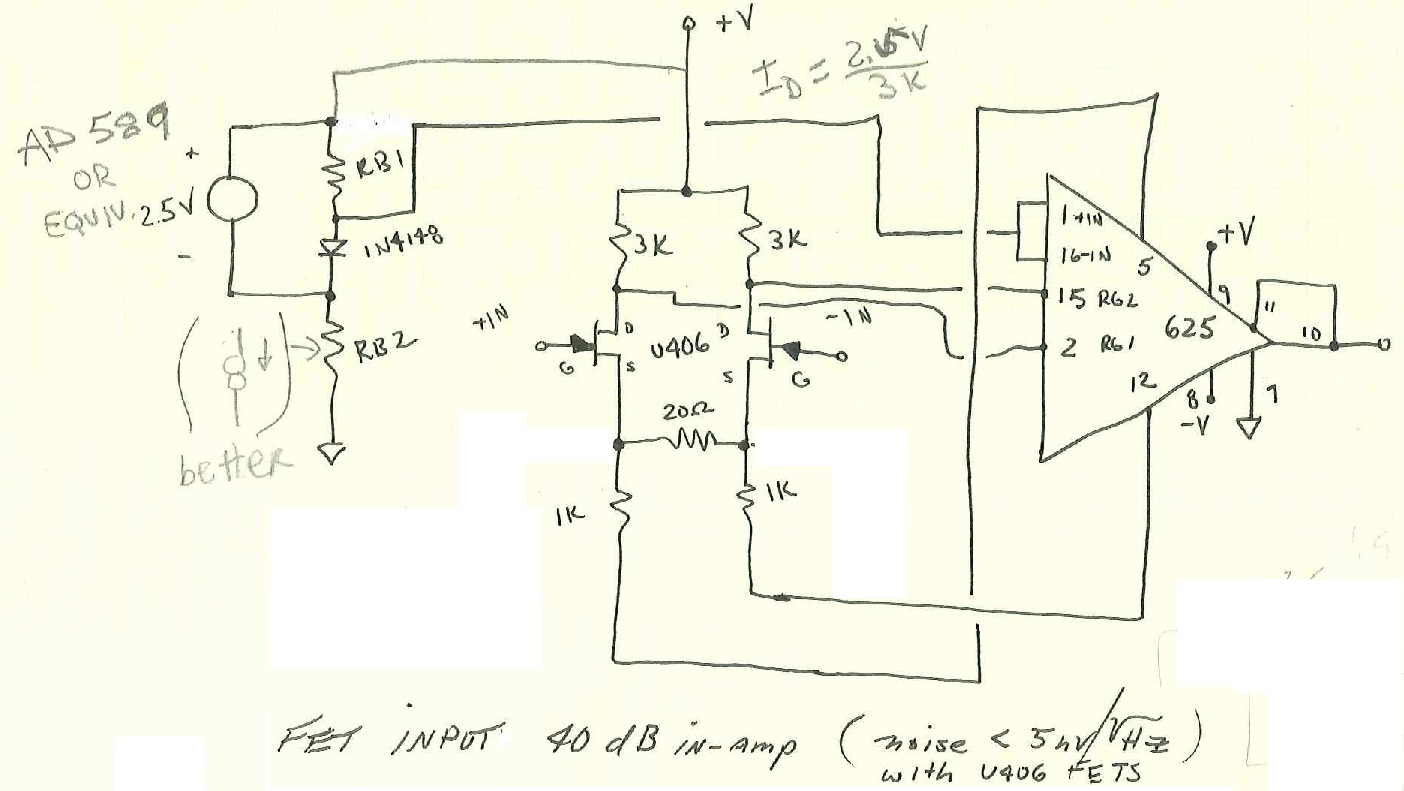 +V
I_D = 2.5V / 3K
AD 589
OR
EQUIV. 2.5V
+
-
RB1
1N4148
RB2
better
3K
3K
+IN
-IN
D
D
U406
G
S
S
G
20Ω
1K
1K
1 +IN
16-IN
15 RG2
2 RG1
5
625
12
+V
9
11
10
8
-V
7
FET INPUT 40 dB in-amp (noise < 5nV/√Hz)
with U406 FETS